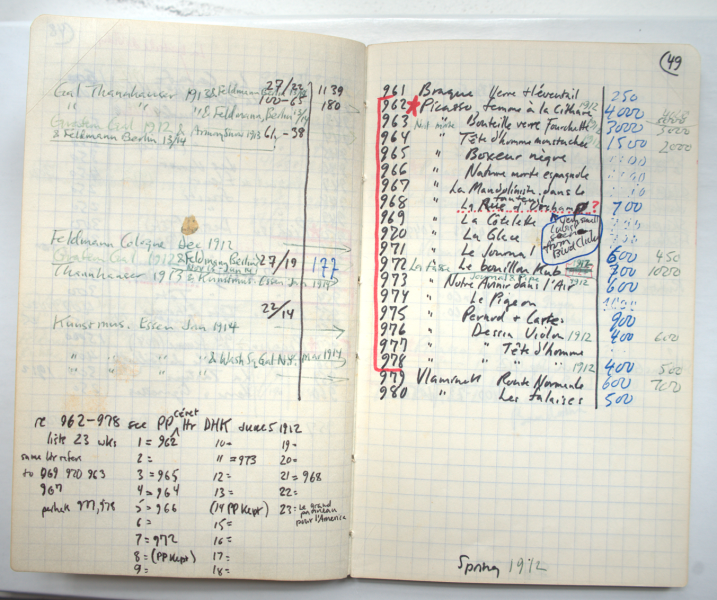 27/22
Gal Thannhauser 1913 & Feldmann Berlin 1139
100-65 180
" " " & Feldmann, Berlin
Gal 1912 & Armory Show 1913 61-38
& Feldmann Berlin 13/14
Feldmann Cologne Dec 1912
1912 & Feldmann Berlin 27/19 177
Thannhauser 1913 & Kunstmus. Essen Jan 1914
22/14
Kunstmus. Essen Jan 1914
" " " " & Wash Sq Gal N.Y. Mar 1914
re 962-978 see PP céret ltr DHK June 5 1912
lists 23 wks
same ltr refers
to 969 970 963
967
perhaps 977, 978
1 = 962
2 =
3 = 965
4 = 964
5 = 966
6 =
7 = 972
8 = (PP Kept)
9 =
10 =
11 = 973
12 =
13 =
(14 PP Kept)
15 =
16 =
17 =
18 =
19 =
20 =
21 = 968
22 =
23 = Le Grand
panneau
pour l'Amerique
49
961 Braque Verre + l'éventail 250
962 Picasso, femme à la Cithare 1912 4000
963 " Bouteille verre Fourchette 3000
964 " Tête d'homme moustachee 1500 2000
965 " Boxeur nègre
966 " Nature morte espagnole
967 " La Mandoliniste dans le
fauteuil
968 " La Rue d'Orchamp ? 700
969 " La Côtelette
970 " La Glace
very small
cubist
scene
from
Blvd Clichy
971 " Le Journal 600 450
972 " Le bouillon Kub 1912 700
Journal & Pipe
973 " Notre Avenir dans l'Air 1912 600
974 " Le Pigeon
975 " Pernod + Cartes 900
976 " Dessin Violon 1912 400 600
977 " " Tête d'homme
978 " " " 1912 400 500
979 Vlaminck Route Normande 600 700
980 " Les falaises 500
Spring 1912